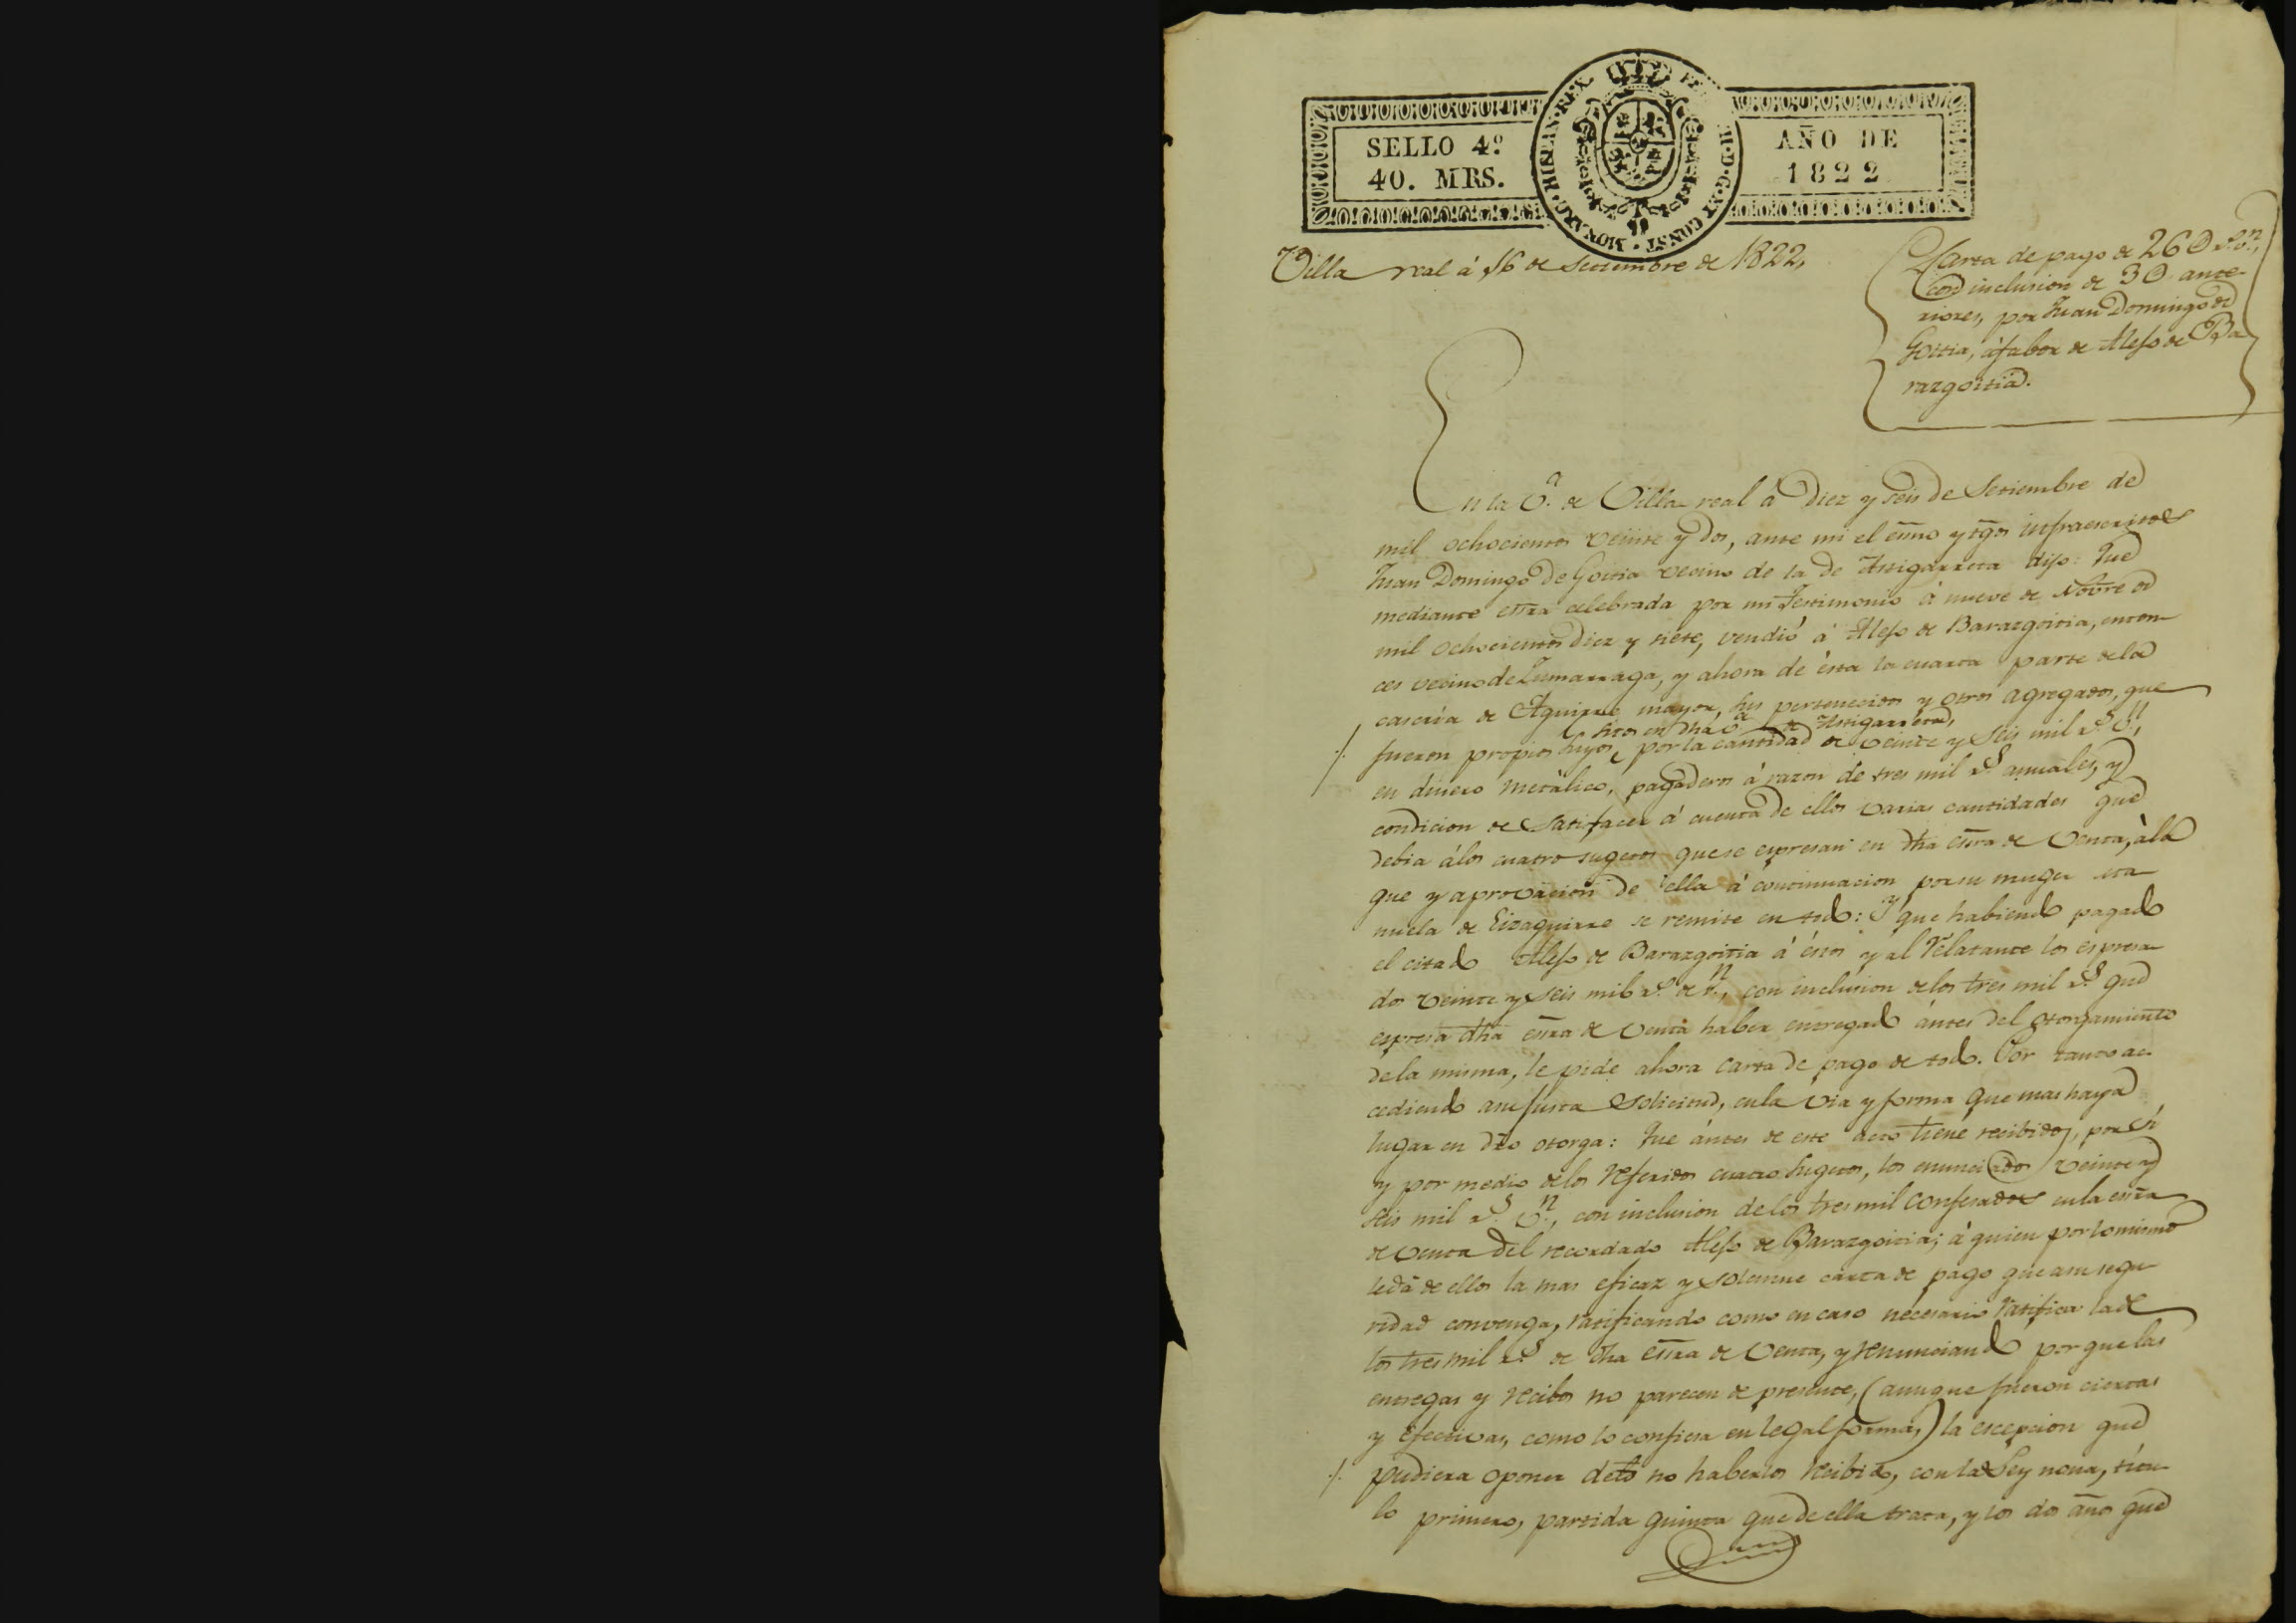 SELLO 4º
40. MRS.
AÑO DE
1822
HISPAN·REX·
D·G·ET CONST·MONARG·
Villa real á 16 de Setiembre de 1822,
Carta de pago de 26 D r.s v.n,
con inclusion de 3 D ante
riores, por Juan Domingo de
Goitia, á fabor de Alejo de Ba
razgoitia.
En la V.a de Villa real á diez y seis de Setiembre de
mil ochocientos veinte y dos, ante mi el esno y tgos infraescritos
Juan Domingo de Goitia vecino de la de Astigarreta dijo: Que
mediante esra celebrada por mi Testimonio á nueve de Nobre de
mil ochocientos diez y siete, vendió á Alejo de Barazgoitia, enton
ces vecino de Zumarraga, y ahora de ésta la cuarta parte de la
caseria de Aguirre mayor, sus pertenecidos y otros agregados, que
sitos en dha V.a de Astigarreta,
./. fueron propios suyos, por la cantidad de veinte y seis mil r.s v.n,
en dinero metálico, pagaderos á razon de tres mil r.s anuales, y
condicion de satisfacer á cuenta de ellos varias cantidades que
debia á los cuatro sugetos que se espresan en dha esra de Venta, á la
que y aprovacion de ella á continuacion por su muger Ma
nuela de Eizaguirre se remite en todo: Y que habiendo pagado
el citado Alejo de Barazgoitia á éstos y al Relatante los espresa
dos veinte y seis mil r.s de v.n, con inclusion de los tres mil r.s que
espresa dha esra de Venta haber entregado ántes del otorgamiento
de la misma, le pide ahora carta de pago de todo. Por tanto ac
cediendo a su justa Solicitud, en la via y forma que mas haya
lugar en dro otorga: Que ántes de este acto tiene recibidos, por sí
y por medio de los referidos cuatro sugetos, los enunciados veinte y
seis mil r.s v.n, con inclusion de los tres mil confesados en la esra
de Venta del recordado Alejo de Barazgoitia; á quien por lo mismo
le dá de ellos la mas eficaz y solemne carta de pago que a su segu
ridad convenga, ratificando como en caso necesario ratifica la de
los tres mil r.s de dha esra de Venta, y renunciando por que las
entregas y recibos no parecen de presente, (aunque fueron ciertas
y efectivas, como lo confiesa en legal forma,) la escepcion que
./. pudiera oponer de no haberlos recibido, con la Ley nona, titu
lo primero, partida quinta que de ella trata, y los dos años que